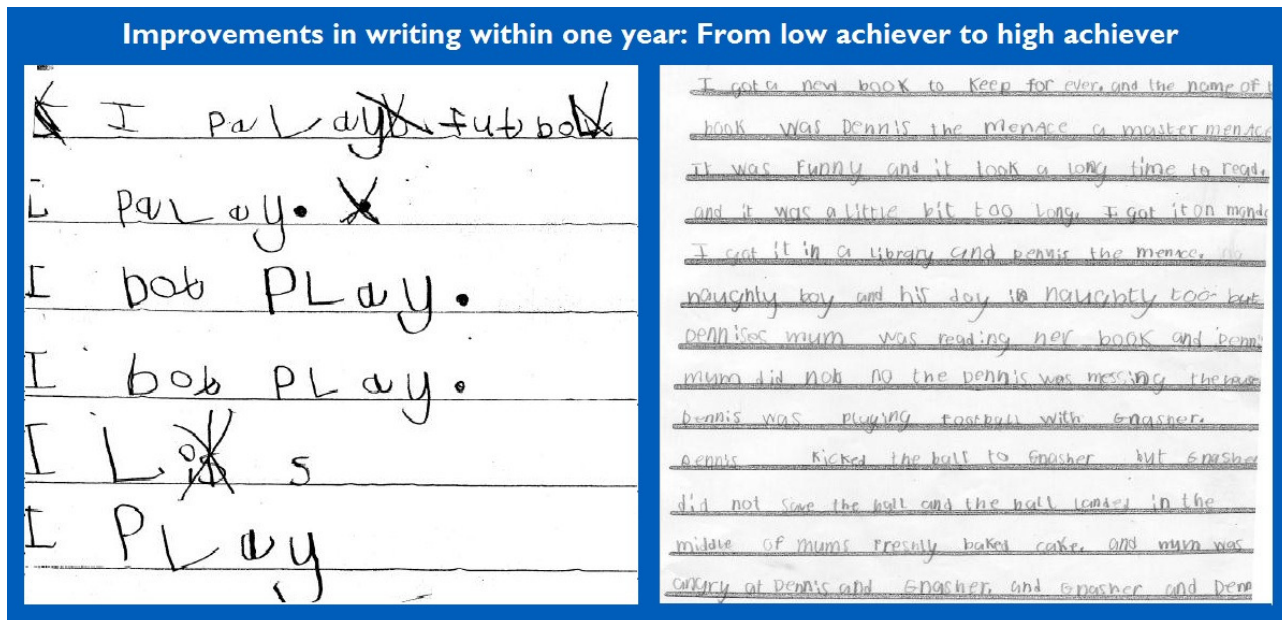 Improvements in writing within one year: From low achiever to high achiever
I paLay futbol
I paLay.
I bob PLay.
I bob PLay.
I L s
I PLay
I got a new book to keep for ever. and the name of
book was Dennis the menace a master menace
It was Funny and it took a long time to read.
and it was a little bit too long. I got it on
I got it in a Library and Dennis the menace.
naughty boy and his dog is naughty too but
Dennises mum was reading her book and
mum did not no the Dennis was messing the house
Dennis was playing football with Gnasher.
Dennis kicked the ball to Gnasher but Gnasher
did not save the ball and the ball landed in the
middle of mums freshly baked cake. and mum was
angry at Dennis and Gnasher. and Gnasher and